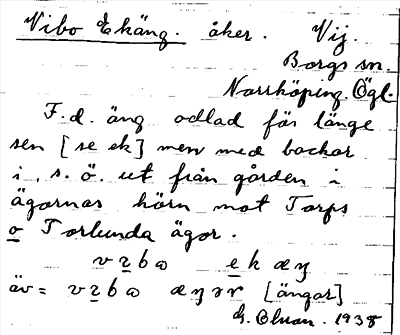 Vibo Ekäng. åker. Vij.
Borgs sn.
Norrköping. Ögl.
F.d. äng odlad för länge
sen [se ek] men med backar
i s. ö. ut från gården i
ägornas hörn mot Torps
o Torlunda ägor.
ek æŋ
äv = [ängar]
1938